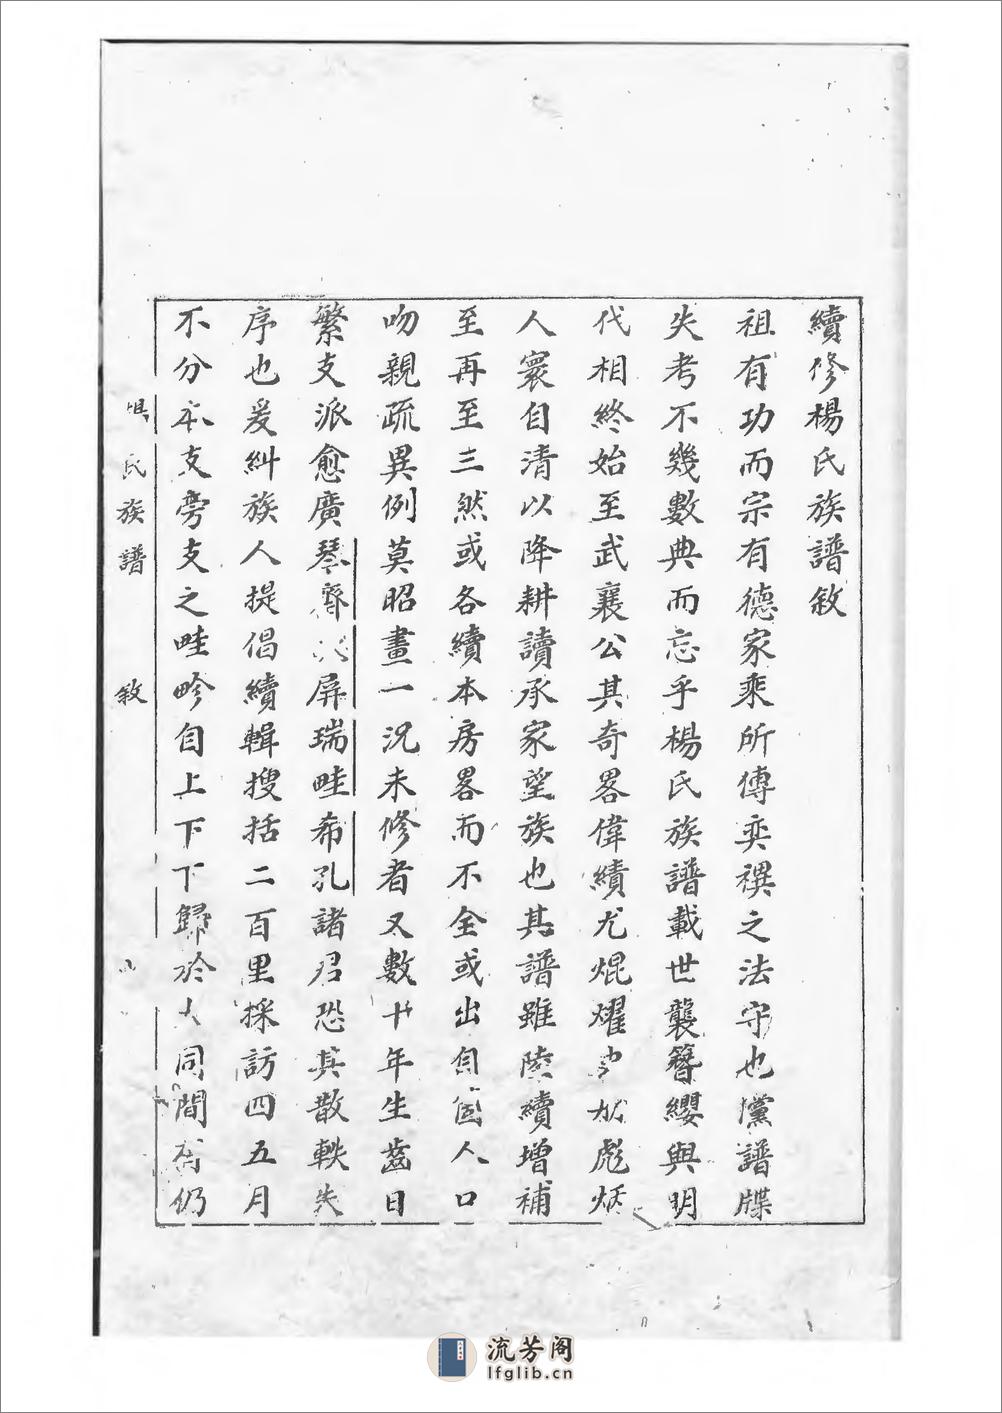 續修楊氏族譜敘
祖有功而宗有德家乘所傳奕禩之法守也儻譜牒
失考不幾數典而忘乎楊氏族譜載世襲簪纓與明
代相終始至武襄公其奇畧偉績尤焜耀彪炳
人寰自清以降耕讀承家望族也其譜雖陸續增補
至再至三然或各續本房畧而不全或出自個人口
吻親疏異例莫昭畫一況未修者又數十年生齒日
繁支派愈廣琴齋屏瑞畦希孔諸君恐其散軼失
序也爰糾族人提倡續輯搜括二百里採訪四五月
不分本支旁支之畦畛自上下下歸於大同間有仍
氏族譜
敘
流芳阁
lfglib.cn